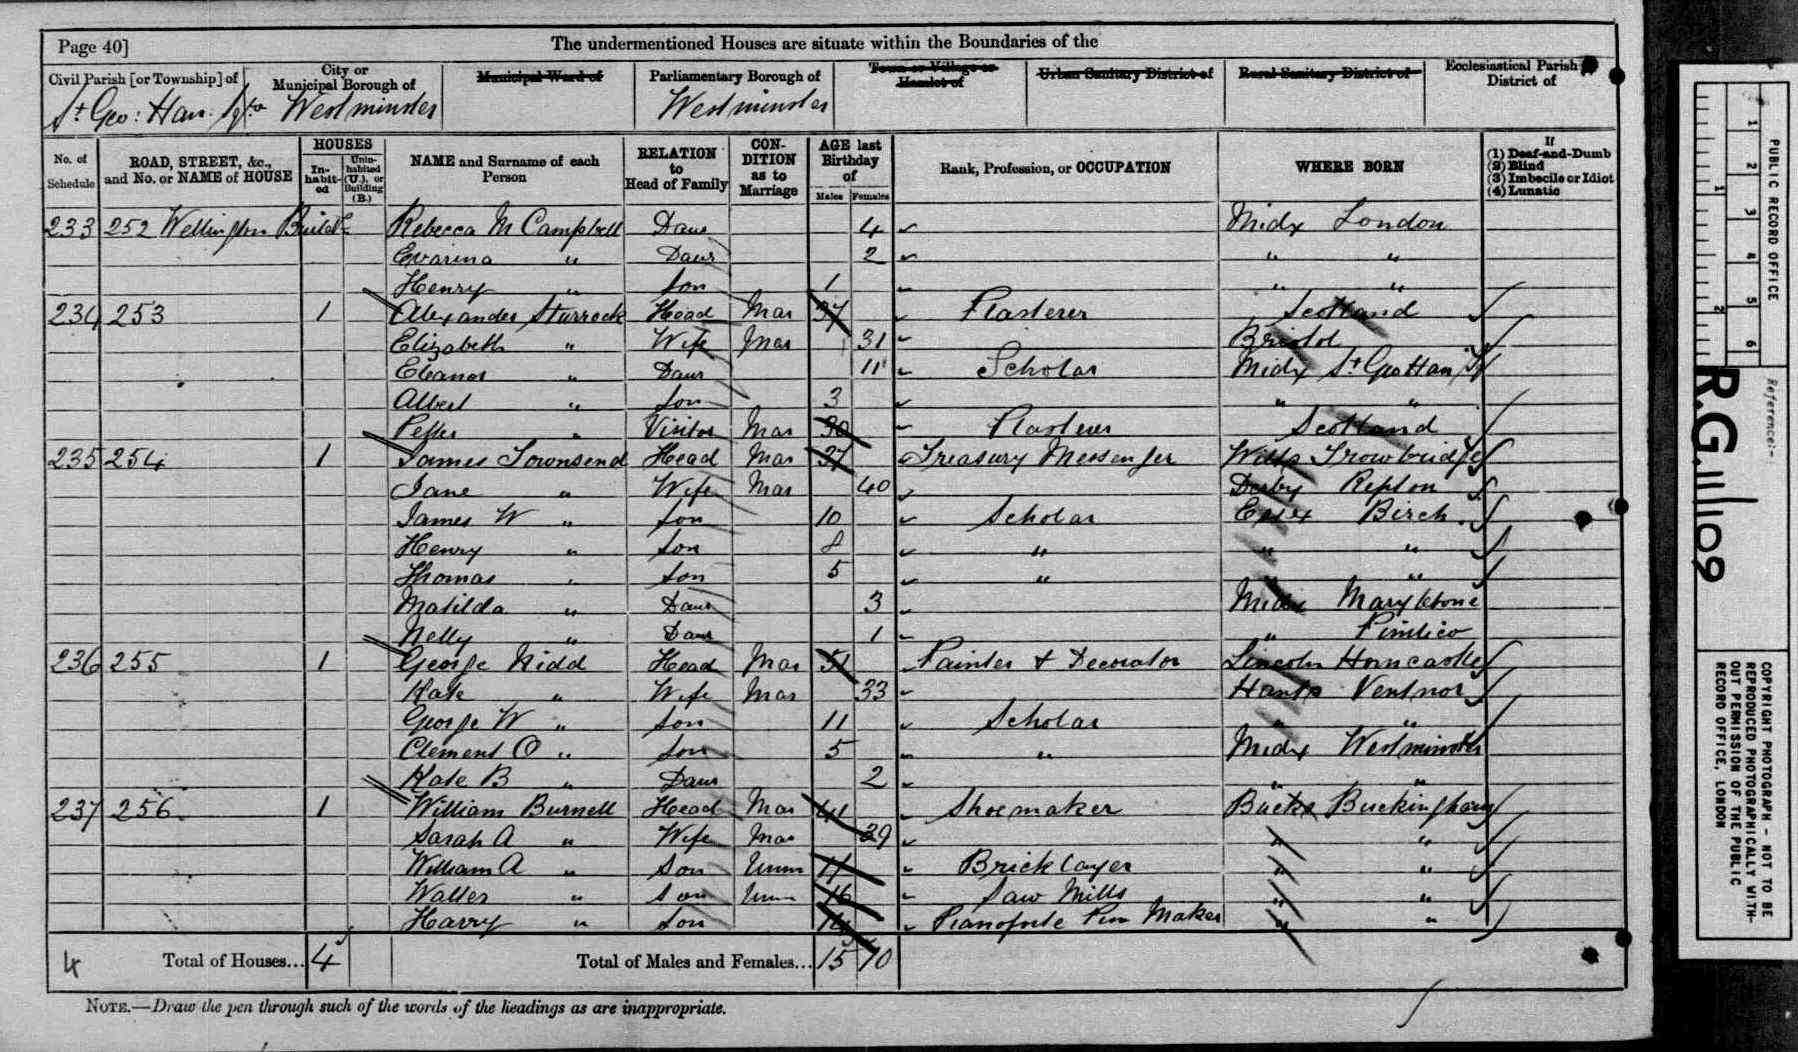 Page 40]
The undermentioned Houses are situate within the Boundaries of the
Civil Parish [or Township] of
St Geo: Han: Sqre
City or Municipal Borough of
Westminster
Municipal Ward of
Parliamentary Borough of
Westminster
Town or Village or Hamlet of
Urban Sanitary District of
Rural Sanitary District of
Ecclesiastical Parish or District of
No. of Schedule
ROAD, STREET, &c., and No. or NAME of HOUSE
HOUSES
In-habit-ed
Unin-habited (U.), or Building (B.)
NAME and Surname of each Person
RELATION to Head of Family
CON-DITION as to Marriage
AGE last Birthday of
Males
Females
Rank, Profession, or OCCUPATION
WHERE BORN
If
(1) Deaf-and-Dumb
(2) Blind
(3) Imbecile or Idiot
(4) Lunatic
233 252 Wellington Buildgs Rebecca M Campbell Daur 4 Midx London
Evarina " Daur 2 " "
Henry " Son 1 " "
234 253 1 Alexander Sturrock Head Mar 37 Plasterer Scotland
Elizabeth " Wife Mar 31 Bristol
Eleanor " Daur 11 Scholar Midx St Geo Han Sq
Albert " Son 3 " "
Peter " Visitor Mar 30 Plasterer Scotland
235 254 1 James Townsend Head Mar 37 Treasury Messenger Wilts Trowbridge
Jane " Wife Mar 40 Derby Repton
James W " Son 10 Scholar Essex Birch
Henry " Son 8 " " "
Thomas " Son 5 " " "
Matilda " Daur 3 Midx Marylebone
Nelly " Daur 1 " Pimlico
236 255 1 George Kidd Head Mar 51 Painter & Decorator Lincoln Horncastle
Kate " Wife Mar 33 Hants Ventnor
George W " Son 11 Scholar " "
Clement O " Son 5 " Midx Westminster
Kate B " Daur 2 " "
237 256 1 William Burnell Head Mar 41 Shoemaker Bucks Buckingham
Sarah A " Wife Mar 39 " "
William A " Son Unm Bricklayer " "
Walter " Son Unm 16 Saw Mills " "
Harry " Son 14 Pianoforte Pin Maker " "
4 Total of Houses... 4 Total of Males and Females... 15 10
NOTE.—Draw the pen through such of the words of the headings as are inappropriate.
PUBLIC RECORD OFFICE
1 2 3 4 5 6
1 2
Reference:-
R.G. 11/109
COPYRIGHT PHOTOGRAPH - NOT TO BE
REPRODUCED PHOTOGRAPHICALLY WITH-
OUT PERMISSION OF THE PUBLIC
RECORD OFFICE, LONDON